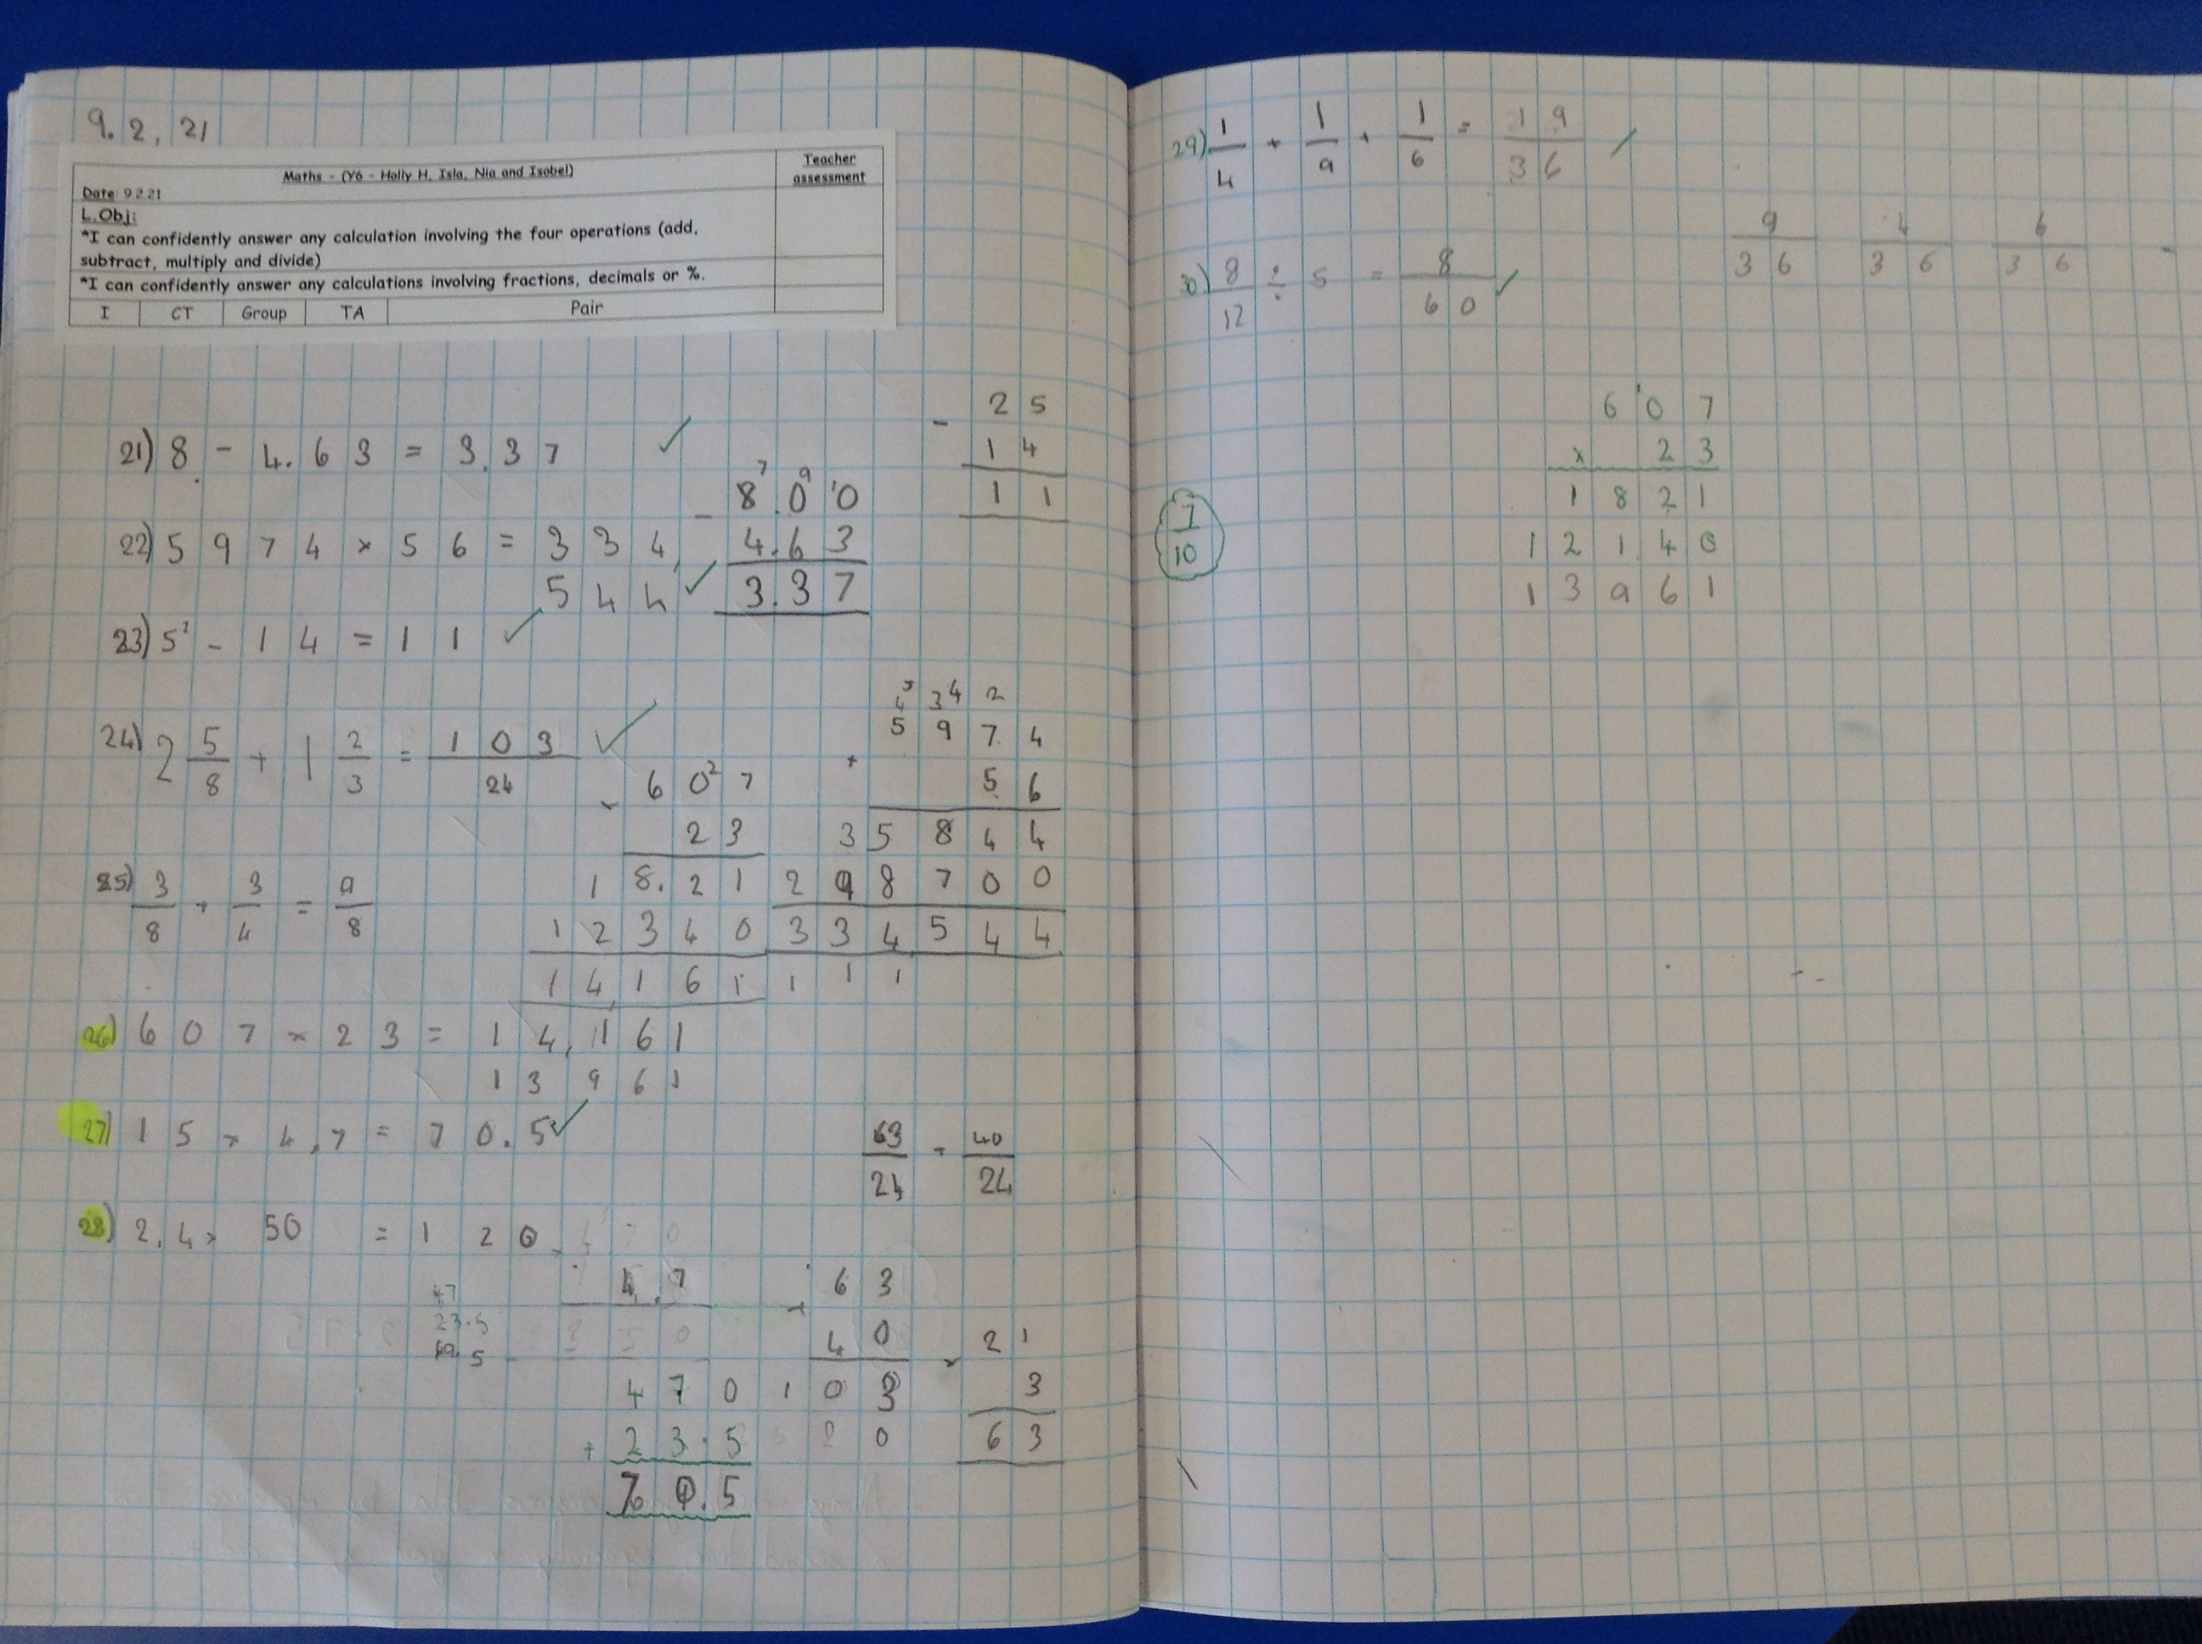 9.2.21
Maths - (Y6 - Holly H, Isla, Nia and Isobel)
Teacher assessment
Date: 9.2.21
L.Obj:
*I can confidently answer any calculation involving the four operations (add,
subtract, multiply and divide)
*I can confidently answer any calculations involving fractions, decimals or %.
I CT Group TA Pair
21) 8 - 4.63 = 3.37 ✓
22) 5974 × 56 = 334,
544 ✓
23) 5² - 14 = 11 ✓
24) 2 5/8 + 1 2/3 = 103/24 ✓
25) 3/8 + 3/4 = 9/8
26) 607 × 23 = 14,161
13961
27) 15 × 4.7 = 70.5 ✓
28) 2.4 × 50 = 120
- 25
14
11
7 9
- 8.0 10
4.63
3.37
5
4 3 4 2
5974
×
56
35844
298700
334,544
1 1 1
× 60²7
23
18.21
12340
14,161
63/24 + 40/24
4.7
23.5
470
+ 23.5
70.5
+ 63
40
103
0
× 21
3
63
29) 1/4 + 1/9 + 1/6 = 19/36 ✓
9/36 4/36 6/36
30) 8/12 ÷ 5 = 8/60 ✓
7/10
607
× 23
1821
12140
13961